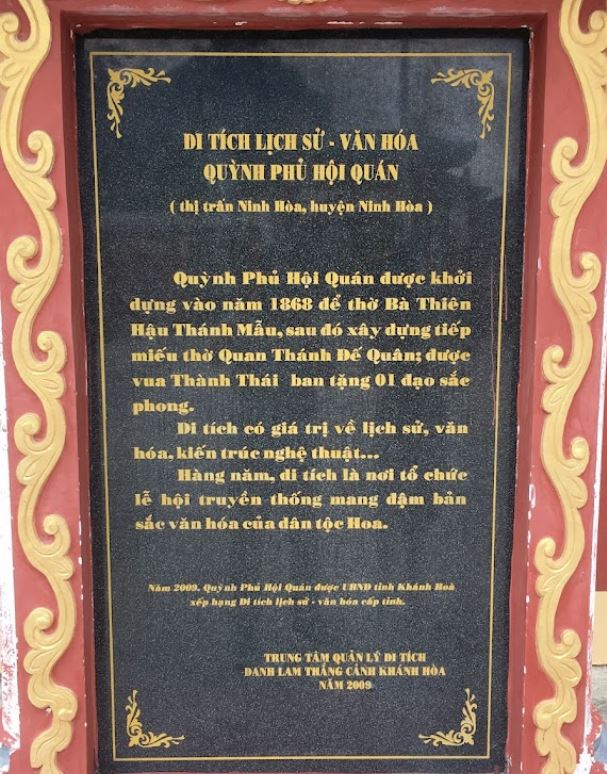 DI TÍCH LỊCH SỬ - VĂN HÓA
QUỲNH PHỦ HỘI QUÁN
( thị trấn Ninh Hòa, huyện Ninh Hòa )
Quỳnh Phủ Hội Quán được khởi
dựng vào năm 1868 để thờ Bà Thiên
Hậu Thánh Mẫu, sau đó xây dựng tiếp
miếu thờ Quan Thánh Đế Quân; được
vua Thành Thái ban tặng 01 đạo sắc
phong.
Di tích có giá trị về lịch sử, văn
hóa, kiến trúc nghệ thuật...
Hàng năm, di tích là nơi tổ chức
lễ hội truyền thống mang đậm bản
sắc văn hóa của dân tộc Hoa.
Năm 2009, Quỳnh Phủ Hội Quán được UBND tỉnh Khánh Hoà
xếp hạng Di tích lịch sử - văn hóa cấp tỉnh.
TRUNG TÂM QUẢN LÝ DI TÍCH
DANH LAM THẮNG CẢNH KHÁNH HÒA
NĂM 2009